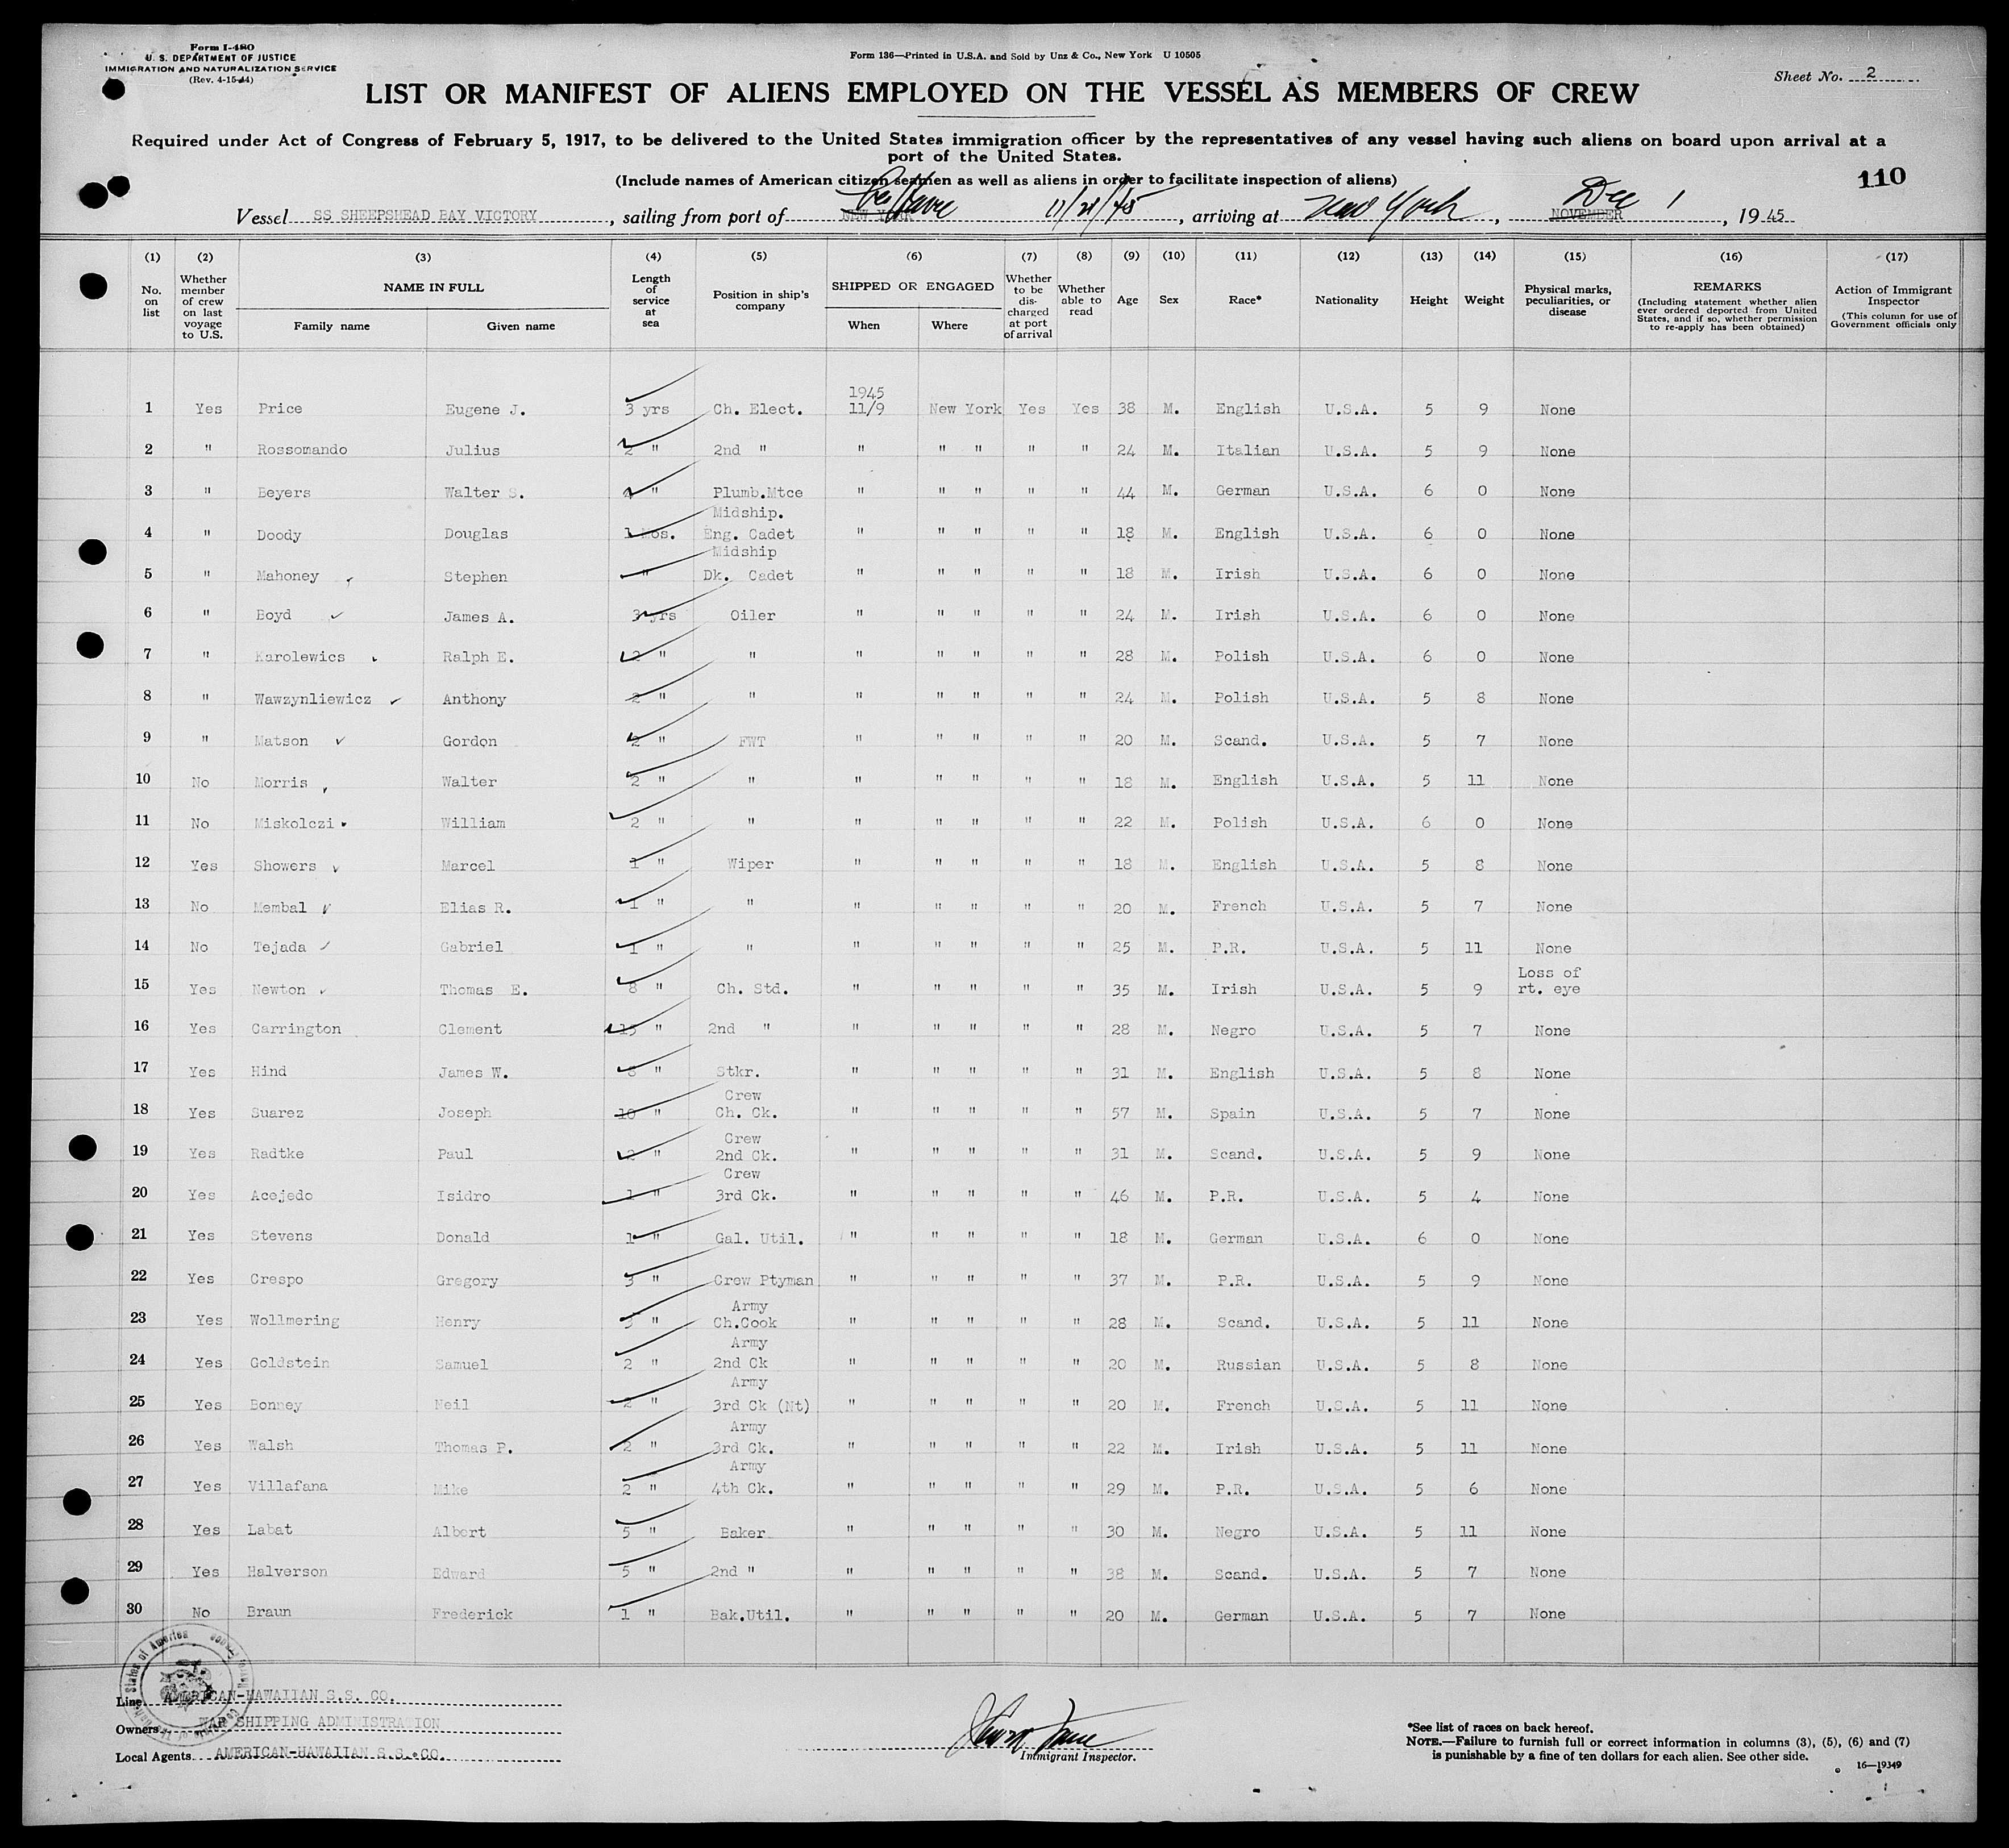 Form I-480
U. S. DEPARTMENT OF JUSTICE
IMMIGRATION AND NATURALIZATION SERVICE
(Rev. 4-15-44)
Form 136—Printed in U.S.A. and Sold by Unz & Co., New York U 10505
Sheet No. 2
LIST OR MANIFEST OF ALIENS EMPLOYED ON THE VESSEL AS MEMBERS OF CREW
Required under Act of Congress of February 5, 1917, to be delivered to the United States immigration officer by the representatives of any vessel having such aliens on board upon arrival at a
port of the United States.
(Include names of American citizen seamen as well as aliens in order to facilitate inspection of aliens)
110
Vessel SS SHEEPSHEAD BAY VICTORY, sailing from port of NEW YORK Le Havre 11/21/45, arriving at New York, NOVEMBER Dec 1, 1945
(1) (2) (3) (4) (5) (6) (7) (8) (9) (10) (11) (12) (13) (14) (15) (16) (17)
No. on list
Whether member of crew on last voyage to U.S.
NAME IN FULL
Family name
Given name
Length of service at sea
Position in ship's company
SHIPPED OR ENGAGED
When
Where
Whether to be discharged at port of arrival
Whether able to read
Age
Sex
Race*
Nationality
Height
Weight
Physical marks, peculiarities, or disease
REMARKS
(Including statement whether alien ever ordered deported from United States, and if so, whether permission to re-apply has been obtained)
Action of Immigrant Inspector
(This column for use of Government officials only
1 Yes Price Eugene J. 3 yrs Ch. Elect. 1945 11/9 New York Yes Yes 38 M. English U.S.A. 5 9 None
2 " Rossomando Julius 2 " 2nd " " " " " " 24 M. Italian U.S.A. 5 9 None
3 " Beyers Walter S. " Plumb.Mtce " " " " " 44 M. German U.S.A. 6 0 None
4 " Doody Douglas 1 Mos. Midship. Eng. Cadet " " " " " 18 M. English U.S.A. 6 0 None
5 " Mahoney Stephen " Midship Dk. Cadet " " " " " 18 M. Irish U.S.A. 6 0 None
6 " Boyd James A. 3 yrs Oiler " " " " " 24 M. Irish U.S.A. 6 0 None
7 " Karolewics Ralph E. 2 " " " " " " " 28 M. Polish U.S.A. 6 0 None
8 " Wawzynliewicz Anthony 2 " " " " " " " 24 M. Polish U.S.A. 5 8 None
9 " Matson Gordon 2 " FWT " " " " " 20 M. Scand. U.S.A. 5 7 None
10 No Morris Walter 2 " " " " " " " 18 M. English U.S.A. 5 11 None
11 No Miskolczi William 2 " " " " " " " 22 M. Polish U.S.A. 6 0 None
12 Yes Showers Marcel 1 " Wiper " " " " " 18 M. English U.S.A. 5 8 None
13 No Membal Elias R. 1 " " " " " " " 20 M. French U.S.A. 5 7 None
14 No Tejada Gabriel 1 " " " " " " " 25 M. P.R. U.S.A. 5 11 None
15 Yes Newton Thomas E. 8 " Ch. Std. " " " " " 35 M. Irish U.S.A. 5 9 Loss of rt. eye
16 Yes Carrington Clement 15 " 2nd " " " " " " 28 M. Negro U.S.A. 5 7 None
17 Yes Hind James W. 8 " Stkr. " " " " " 31 M. English U.S.A. 5 8 None
18 Yes Suarez Joseph 10 " Crew Ch. Ck. " " " " " 57 M. Spain U.S.A. 5 7 None
19 Yes Radtke Paul 2 " Crew 2nd Ck. " " " " " 31 M. Scand. U.S.A. 5 9 None
20 Yes Acejedo Isidro 1 " Crew 3rd Ck. " " " " " 46 M. P.R. U.S.A. 5 4 None
21 Yes Stevens Donald 1 " Gal. Util. " " " " " 18 M. German U.S.A. 6 0 None
22 Yes Crespo Gregory 3 " Crew Ptyman " " " " " 37 M. P.R. U.S.A. 5 9 None
23 Yes Wollmering Henry 3 " Army Ch.Cook " " " " " 28 M. Scand. U.S.A. 5 11 None
24 Yes Goldstein Samuel 2 " Army 2nd Ck " " " " " 20 M. Russian U.S.A. 5 8 None
25 Yes Bonney Neil 2 " Army 3rd Ck (Nt) " " " " " 20 M. French U.S.A. 5 11 None
26 Yes Walsh Thomas P. 2 " Army 3rd Ck. " " " " " 22 M. Irish U.S.A. 5 11 None
27 Yes Villafana Mike 2 " Army 4th Ck. " " " " " 29 M. P.R. U.S.A. 5 6 None
28 Yes Labat Albert 5 " Baker " " " " " 30 M. Negro U.S.A. 5 11 None
29 Yes Halverson Edward 5 " 2nd " " " " " " 38 M. Scand. U.S.A. 5 7 None
30 No Braun Frederick 1 " Bak.Util. " " " " " 20 M. German U.S.A. 5 7 None
Line AMERICAN-HAWAIIAN S.S. CO.
Owners WAR SHIPPING ADMINISTRATION
Local Agents AMERICAN-HAWAIIAN S.S. CO.
Immigrant Inspector.
*See list of races on back hereof.
NOTE.—Failure to furnish full or correct information in columns (3), (5), (6) and (7)
is punishable by a fine of ten dollars for each alien. See other side.
16—19349